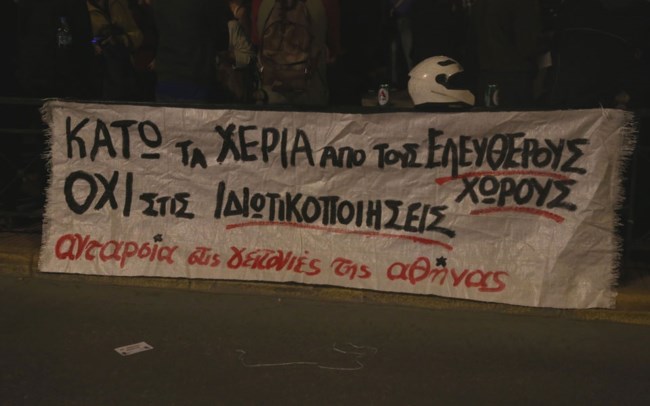 ΚΑΤΩ ΤΑ ΧΕΡΙΑ ΑΠΟ ΤΟΥΣ ΕΛΕΥΘΕΡΟΥΣ
ΧΩΡΟΥΣ
ΟΧΙ ΣΤΙΣ ΙΔΙΩΤΙΚΟΠΟΙΗΣΕΙΣ
ανταρσία στις γειτονιές της αθήνας